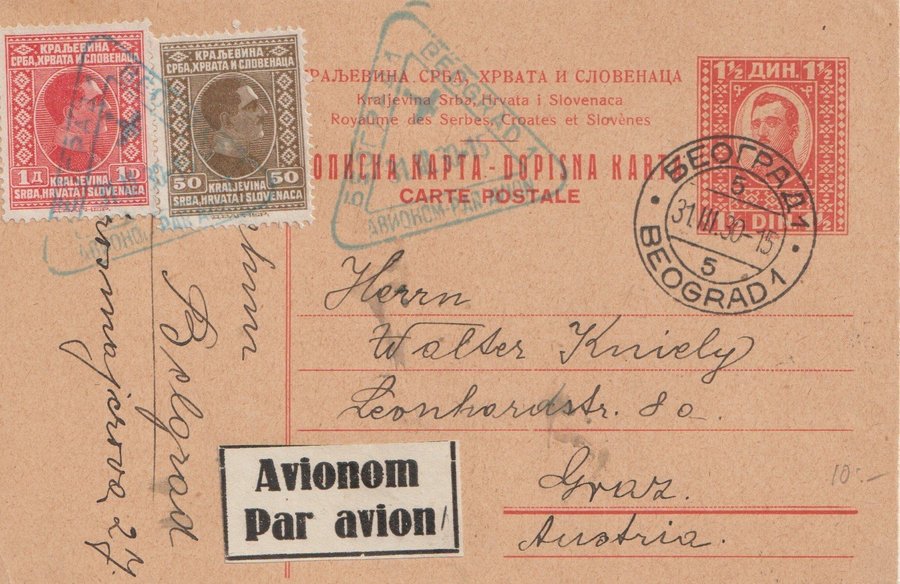 КРАЉЕВИНА
СРБА, ХРВАТА И СЛОВЕНАЦА
1 Д 1 D
KRALJEVINA
SRBA, HRVATA I SLOVENACA
КРАЉЕВИНА
СРБА, ХРВАТА И СЛОВЕНАЦА
50 50
KRALJEVINA
SRBA, HRVATA I SLOVENACA
BEOGRAD 1
АВИОНОМ-PAR AVION
КРАЉЕВИНА СРБА, ХРВАТА И СЛОВЕНАЦА
Kraljevina Srba, Hrvata i Slovenaca
Royaume des Serbes, Croates et Slovènes
ДОПИСНА КАРТА - DOPISNA KARTA
CARTE POSTALE
1½ ДИН. 1½
1½ DIN. 1½
БЕОГРАД 1
5
31.III.30-15
5
BEOGRAD 1
Herrn
Walter Kniely
Leonhardstr. 8a.
Graz.
Austria.
Belgrad
27.
Avionom
Par avion
10.-